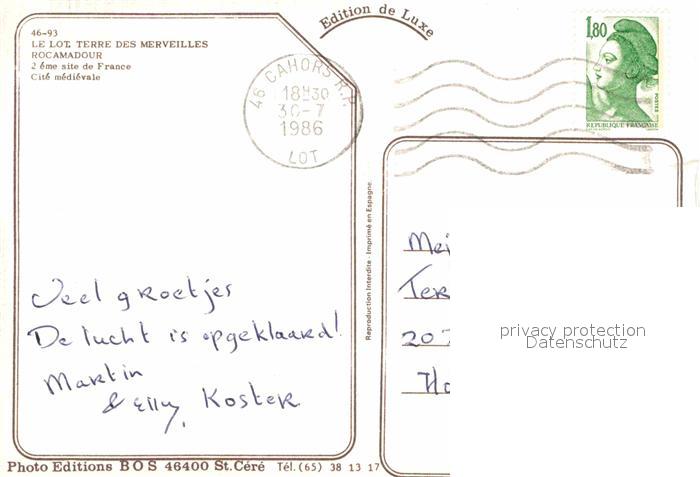 46-93
LE LOT, TERRE DES MERVEILLES
ROCAMADOUR
2 éme site de France
Cité médiévale
Edition de Luxe
46 CAHORS R.P.
18H30
30-7
1986
LOT
1,80
POSTES
REPUBLIQUE FRANÇAISE
Veel groetjes
De lucht is opgeklaard!
Martin
& Elly Koster
Reproduction Interdite - Imprimé en Espagne
Mei
Ter
207
Ho
privacy protection
Datenschutz
Photo Editions BOS 46400 St.Céré Tél.(65) 38 13 17